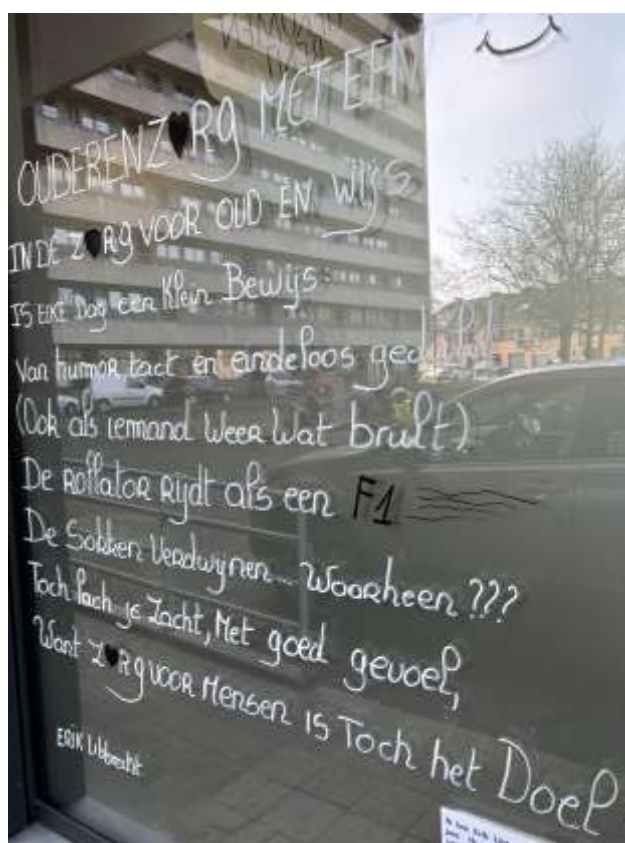 OUDERENZ♥Rg MET EEN
IN DE Z♥Rg VOOR OUD EN wijs
IS ELKE Dag een Klein Bewijs:
Van humor, tact en eindeloos geduld
(Ook als iemand Weer Wat brult)
De Rollator Rijdt als een F1
De Sokken Verdwijnen... Waarheen ???
Toch lach je Zacht, Met goed gevoel,
Want Z♥Rg VOOR Mensen IS Toch het Doel
ERIK Libbrecht